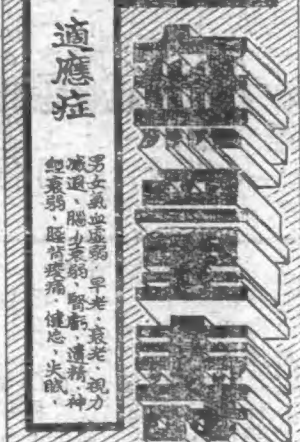 適應症
男女氣血虛弱、早老、衰老、視力
減退、腦力衰弱、腎虧、遺精、神
經衰弱、腰背痠痛、健忘、失眠、